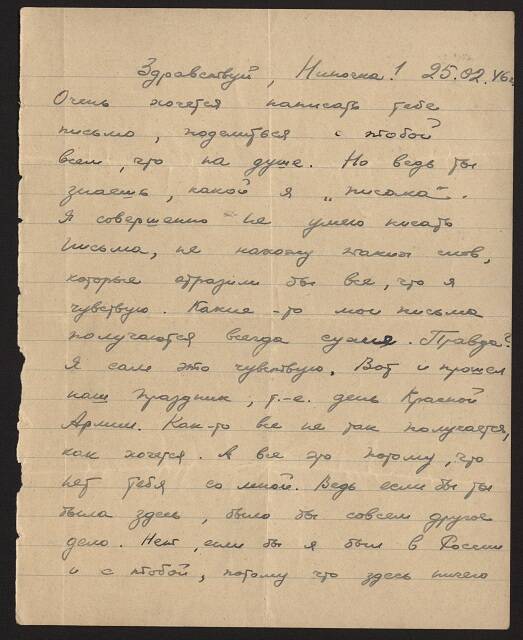 Здравствуй, Ниночка! 25.02.46г.
Очень хочется написать тебе
письмо, поделиться с тобой
всем, что на душе. Но ведь ты
знаешь, какой я „писака".
Я совершенно не умею писать
письма, не нахожу таких слов,
которые отразили бы все, что я
чувствую. Какие-то мои письма
получаются всегда сухие. Правда?
Я сам это чувствую. Вот и прошел
наш праздник, т.-е. день Красной
Армии. Как-то все не так получается,
как хочется. А все это потому, что
нет тебя со мной. Ведь если бы ты
была здесь, было бы совсем другое
дело. Нет, если бы я был в России
и с тобой, потому что здесь ничего